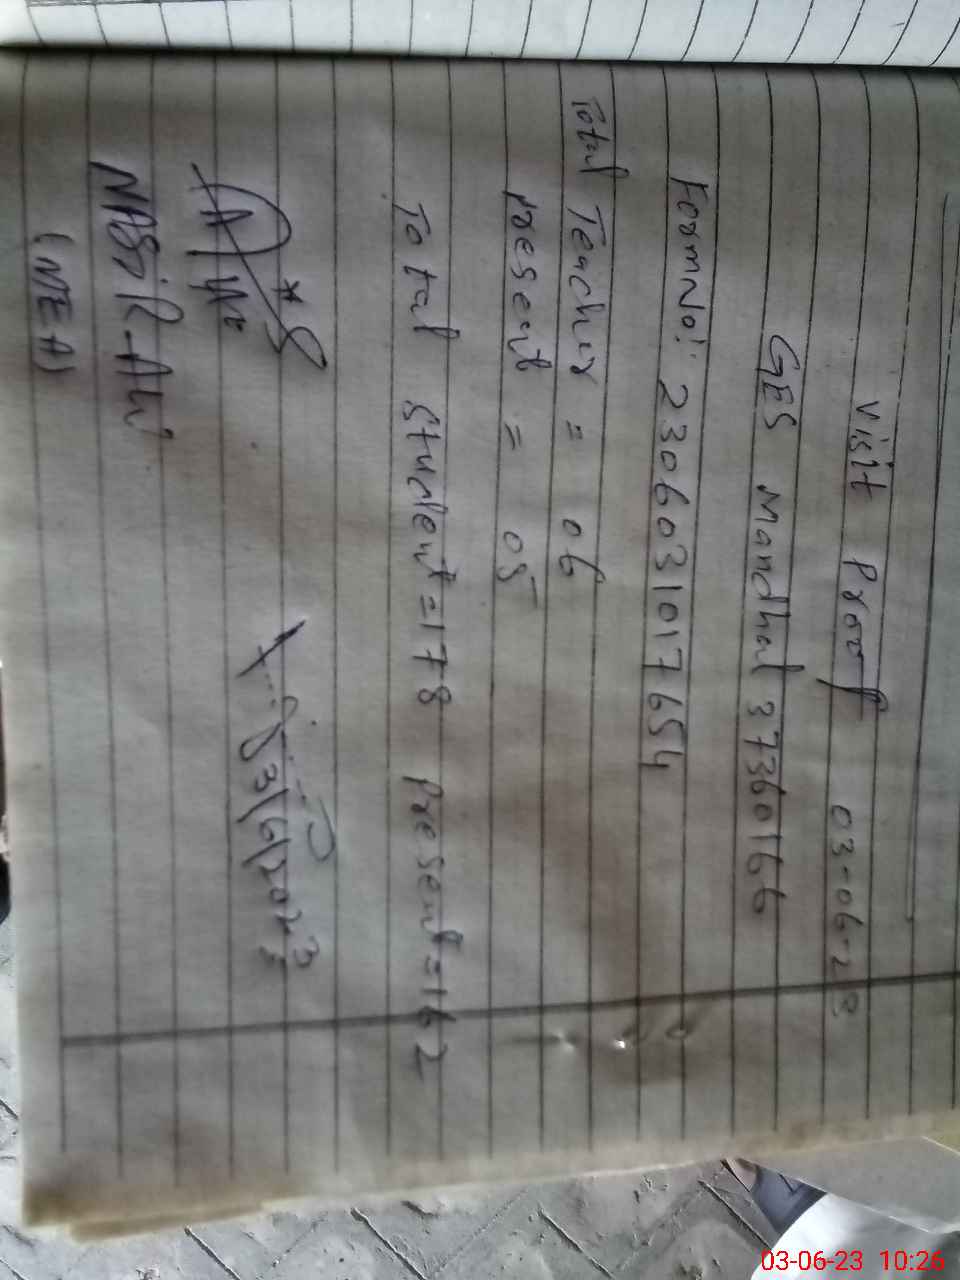 Visit Proof 03-06-23
GES Mandhal 37360166
Form No: 230603101 7654
Total Teacher = 06
present = 05
Total Student = 178 present = 162
3/6/2023
NASiR-Ali
(MEA)
03-06-23 10:26